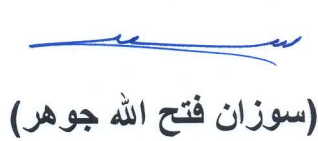 (سوزان فتح الله جوهر)